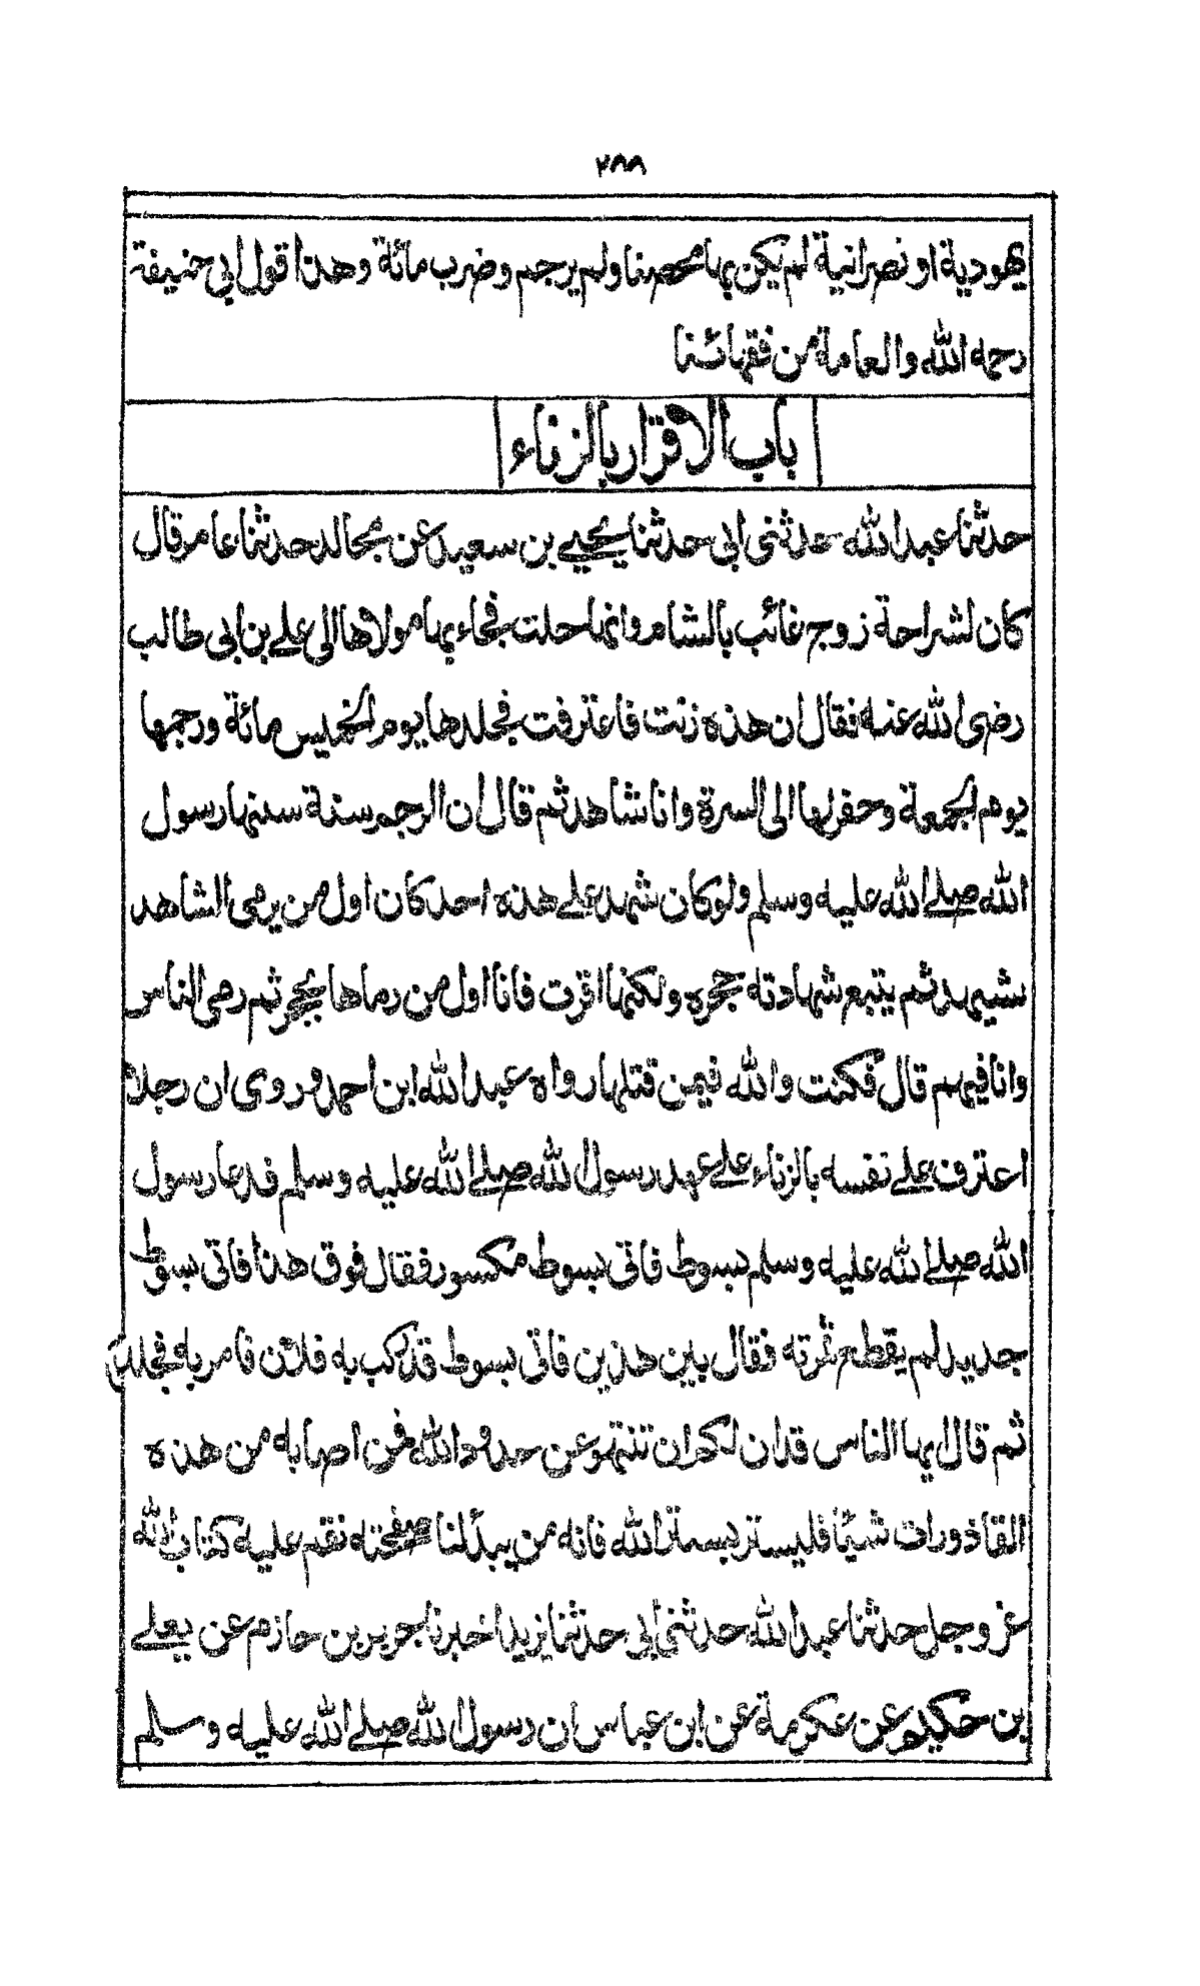 ٢٨٨
يهودية او نصرانية لم يكن بها محصنا ولم يرجم وضرب مائة وهذا قول ابى حنيفة
رحمه الله والعامة من فقهائنا
باب الاقرار بالزناء
حدثنا عبد الله حدثنى ابى حدثنا يحيى بن سعيد عن مجالد حدثنا عامر قال
كان لشراحة زوج غائب بالشام وانها حملت فجاء بها مولاها الى على بن ابى طالب
رضى الله عنه فقال ان هذه زنت فاعترفت فجلدها يوم الخميس مائة ورجمها
يوم الجمعة وحفر لها الى السرة وانا شاهد ثم قال ان الرجم سنة سنها رسول
الله صلى الله عليه وسلم ولو كان شهد على هذه احد كان اول من يرمى الشاهد
شيهد ثم يتبع شهادته حجره ولكنها اقرت فانا اول من رماها بحجر ثم رمى الناس
وانا فيهم قال فكنت والله فيمن قتلها رواه عبد الله ابن احمد وروى ان رجلا
اعترف على نفسه بالزناء على عهد رسول الله صلى الله عليه وسلم فدعا رسول
الله صلى الله عليه وسلم بسوط فاتى بسوط مكسور فقال فوق هذا فاتى بسوط
جديد لم يقطع ثمرته فقال بين هذين فاتى بسوط قد ركب به فلان فامر به فجلد
ثم قال ايها الناس قد ان لكم ان تنتهو عن حدود الله فمن اصابه من هذه
القاذورات شيئا فليستتر بستر الله فانه من يبد لنا صفحته نقم عليه كتاب الله
عز وجل حدثنا عبد الله حدثنى ابى حدثنا يزيد اخبرنا جرير بن حازم عن يعلى
بن حكيم عن عكرمة عن ابن عباس ان رسول الله صلى الله عليه وسلم